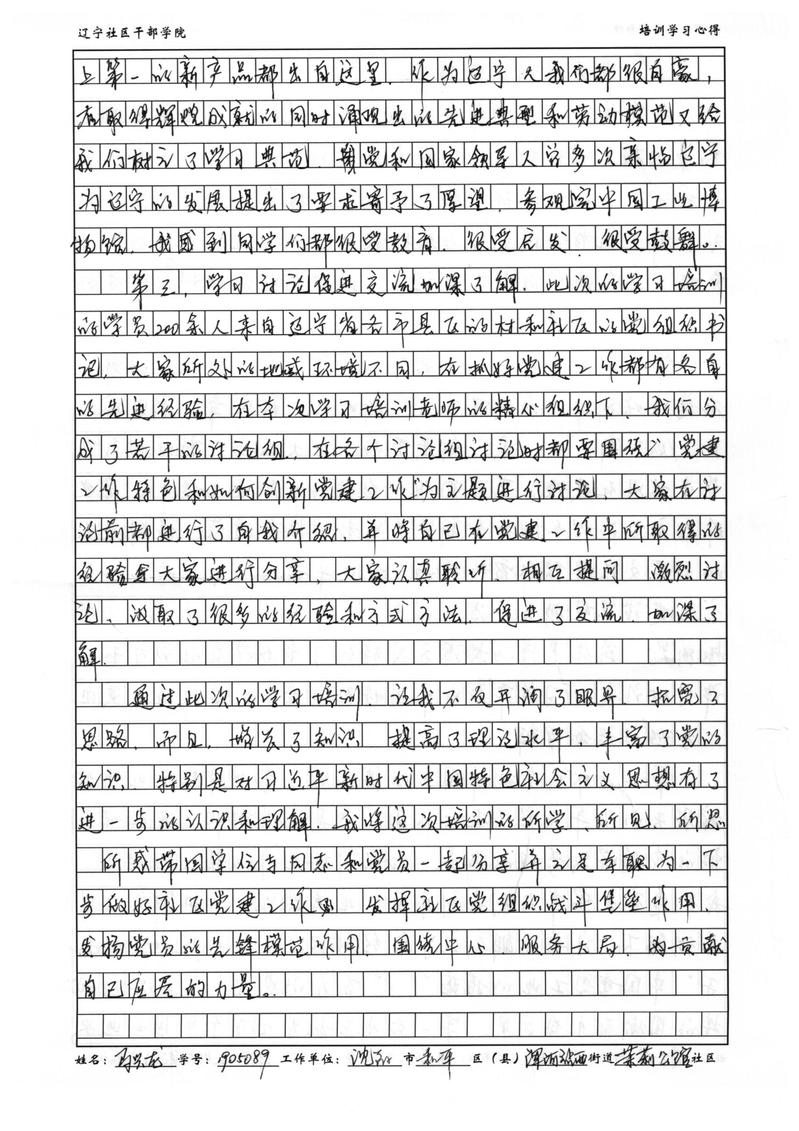 辽宁社区干部学院 培训学习心得
上第一的新产品都出自这里,作为辽宁人我们都很自豪,
在取得辉煌成就的同时涌现出的先进典型和劳动模范又给
我们树立了学习典范,党和国家领导人曾多次亲临辽宁
为辽宁的发展提出了要求寄予了厚望。参观完中国工业博
物馆,我感到同学们都很受教育,很受启发,很受鼓舞。
第三,学习讨论促进交流加深了解,此次的学习培训
的学员200余人来自辽宁省各市县区的村和社区的党组织书
记,大家所处的地域环境不同,在抓好党建工作都有各自
的先进经验,在本次学习培训老师的精心组织下,我们分
成了若干的讨论组,在各个讨论组讨论时都要围绕“党建
工作特色和如何创新党建工作”为主题进行讨论,大家在讨
论前都进行了自我介绍,并将自己在党建工作中所取得的
经验拿大家进行分享,大家认真聆听,相互提问,激烈讨
论,汲取了很多的经验和方式方法,促进了交流,加深了
解。
通过此次的学习培训,让我不仅开阔了眼界,拓宽了
思路,而且,增长了知识,提高了理论水平,丰富了党的
知识,特别是对习近平新时代中国特色社会主义思想有了
进一步的认识和理解,我将这次培训的所学、所见、所思
所感带回单位与同志和党员一起分享并立足本职为一下
步做好社区党建工作,发挥社区党组织战斗堡垒作用,
发扬党员的先锋模范作用,围绕中心,服务大局,为贡献
自己应尽的力量。
姓名: 学号:1905089 工作单位:沈阳市和平区(县)浑河站西街道茉莉公馆社区